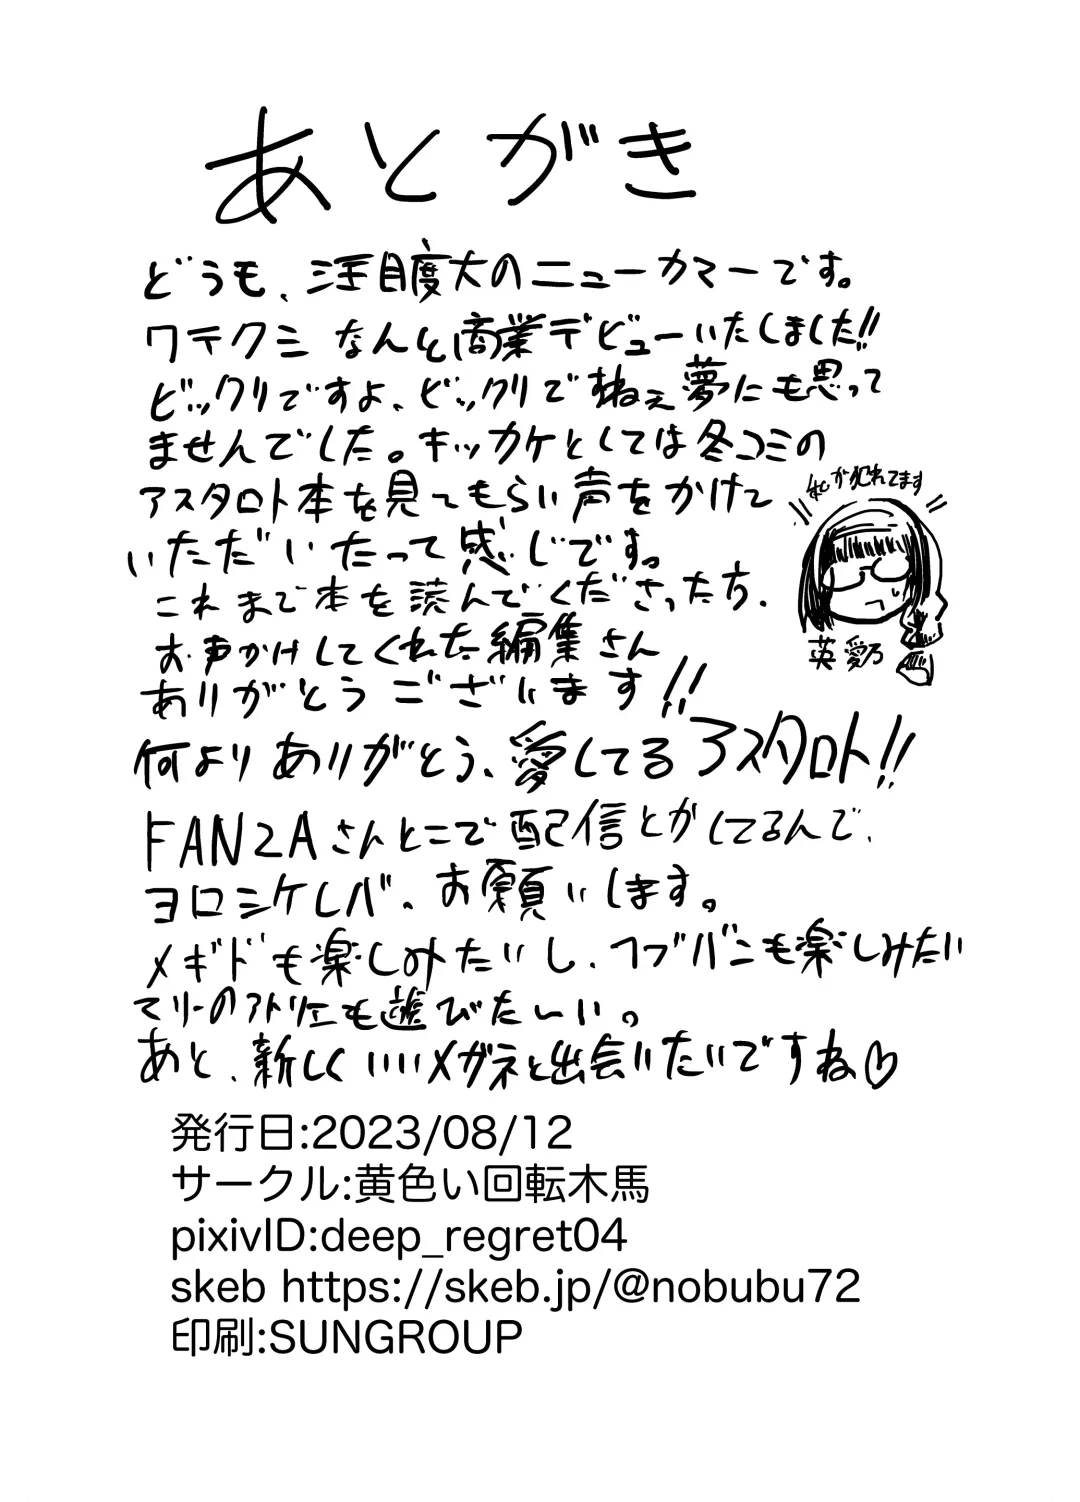 あとがき
どうも、注目度大のニューカマーです。
ワテクシ なんと商業デビューいたしました!!
ビックリですよ、ビックリですねぇ夢にも思って
ませんでした。キッカケとしては冬コミの
アスタロト本を見てもらい声をかけて
いただいたって感じです。
これまで本を読んでくださった方、
お声かけしてくれた編集さん
ありがとうございます!!
私が犯れてます
英 愛乃
何よりありがとう、愛してるアスタロト!!
FANZAさんとこで配信とかしてるんで、
ヨロシケレバ、お願いします。
メギドも楽しみたいし、フブバニも楽しみたい
てリーのアトリエも遊びたーい。
あと、新しくいいメガネと出会いたいですね♡
発行日:2023/08/12
サークル:黄色い回転木馬
pixivID:deep_regret04
skeb https://skeb.jp/@nobubu72
印刷:SUNGROUP